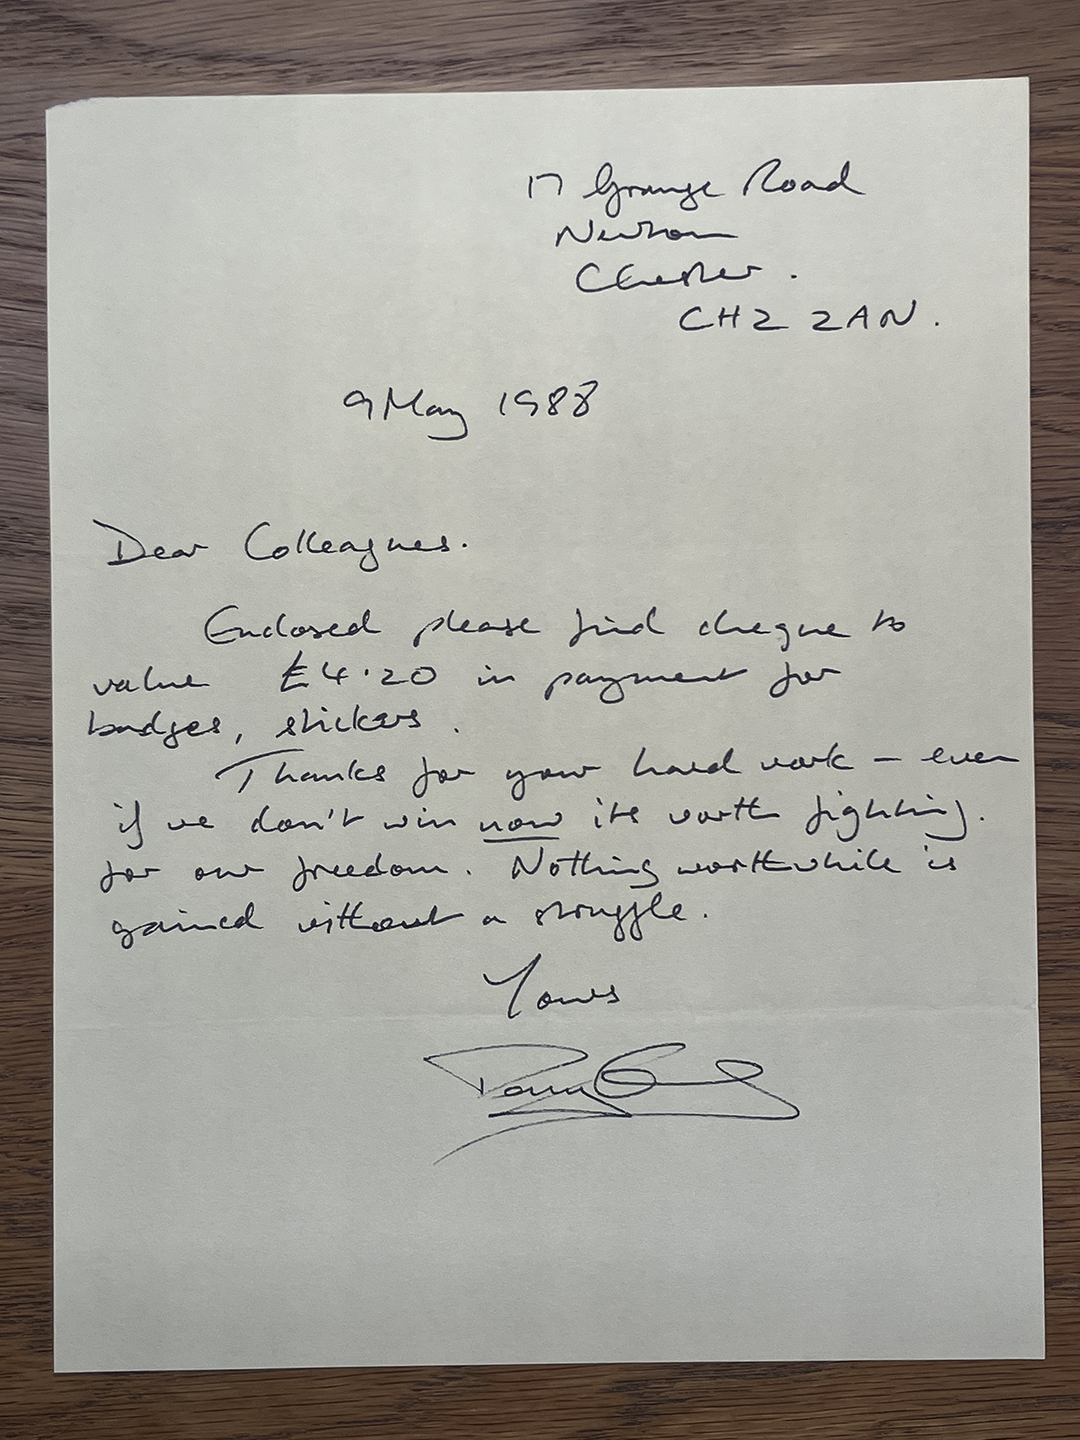 17 Grange Road
Newton
Chester.
CH2 2AN.
9 May 1988
Dear Colleagues.
Enclosed please find cheque to
value £4.20 in payment for
badges, stickers.
Thanks for your hard work - even
if we don't win now its worth fighting.
for our freedom. Nothing worthwhile is
gained without a struggle.
Yours